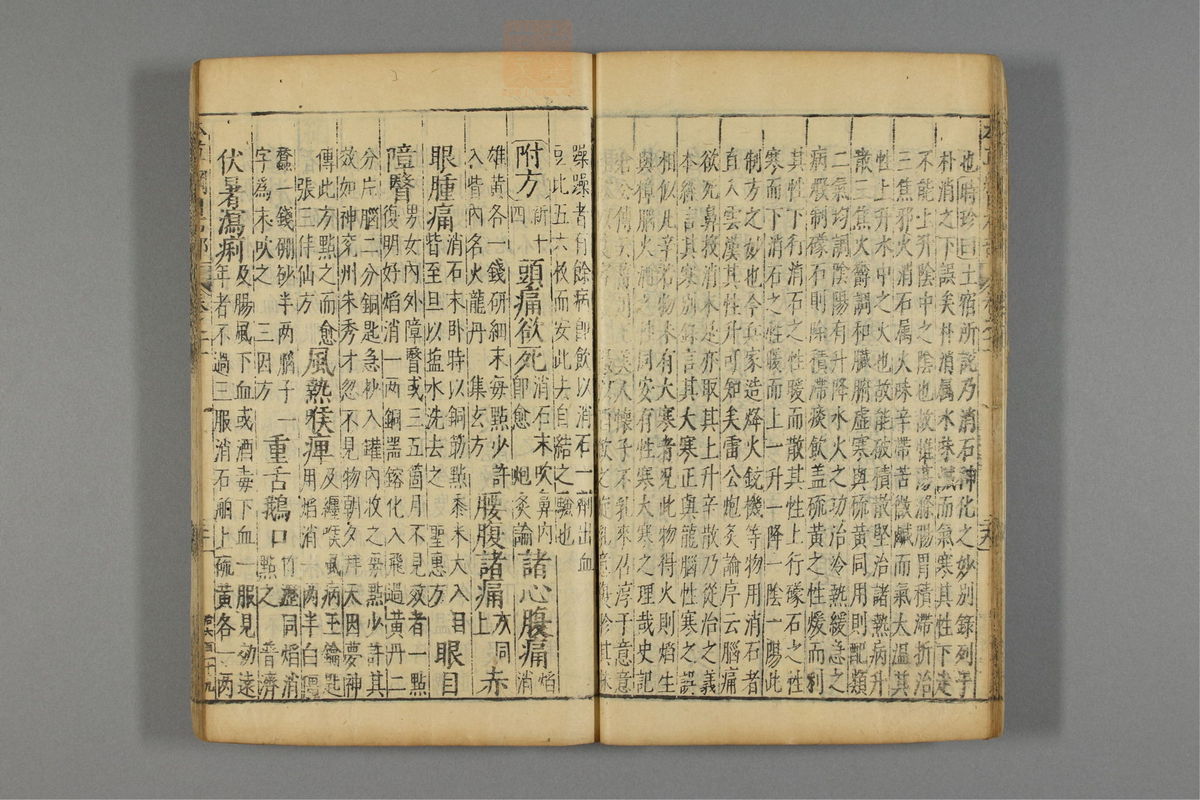 也時珍曰土宿所說乃消石神化之妙別錄列于
朴消之下誤矣朴消屬水味鹹而氣寒其性下走
不能上升陰中之陰也故惟蕩滌腸胃積滯折治
三焦邪火消石屬火味辛帶苦微鹹而氣大溫其
性上升水中之火也故能破積散堅治諸熱病升
散三焦火鬱調和臟腑虛寒與硫黃同用則配類
二氣均調陰陽有升降水火之功治冷熱緩急之
病煅制礞石則除積滯痰飲盖硫黃之性煖而利
其性下行消石之性暖而散其性上行礞石之性
寒而下消石之性暖而上一升一降一陰一陽此
制方之妙也今兵家造烽火銃機等物用消石者
直入雲漢其性升可知矣雷公炮炙論序云腦痛
欲死鼻投消末是亦取其上升辛散乃從治之義
本經言其寒別錄言其大寒正與龍腦性寒之誤
相似凡辛苦物未有大寒者况此物得火則焰生
與樟腦火酒之性同安有性寒大寒之理哉史記
倉公傳云菑川王美人懷子不乳來召淳于意意
躁躁者有餘病即飲以消石一劑出血
豆比五六枚而安此去血結之驗也
附方 新十四 頭痛欲死 消石末吹鼻內即愈 炮炙論 諸心腹痛 焰消
雄黃各一錢研細末每點少許入眥內名火龍丹 集玄方 腰腹諸痛 方同上 赤
眼腫痛 消石末卧時以銅筯點黍米大入目眥至旦以盐水洗去之 聖惠方 眼目
障瞖 男女內外障瞖或三五箇月不見效者一點復明好焰消一兩銅器鎔化入飛過黃丹二
分片腦二分銅匙急抄入罐內收之每點少許其效如神兖州朱秀才忽不見物朝夕拜天因夢神
傳此方點之而愈 張三丰仙方 風熱喉痺 及纏喉風病玉鑰匙用焰消一兩半白僵
蠶一錢硼砂半兩腦子一字爲末吹之 三因方 重舌鵝口 竹瀝同焰消點之 普濟
伏暑瀉痢 及腸風下血或酒毒下血一服見効遠年者不過三服消石舶上硫黃各一兩